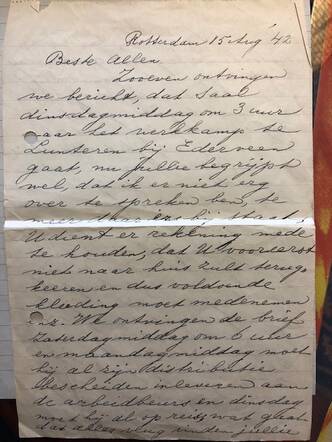 Rotterdam 15 Aug '42
Beste Allen
Zooeven ontvingen
we bericht, dat Saal
dinsdagmiddag om 3 uur
naar het werkkamp te
Lunteren bij Ederveen
gaat, nu jullie begrijpt
wel, dat ik er niet erg
over te spreken ben, te
meer daar er bij staat,
U dient er rekening mede
te houden, dat U vooreerst
niet naar huis zult terug
keeren en dus voldoende
kleeding moet medenemen
enz. We ontvingen de brief
Zaterdagmiddag om 6 uur
en maandagmiddag moet
hij al zijn distributie
bescheiden inleveren aan
de arbeidbeurs en dinsdag
moet hij al op reis, wat gaat
dat alles vlug vinden jullie